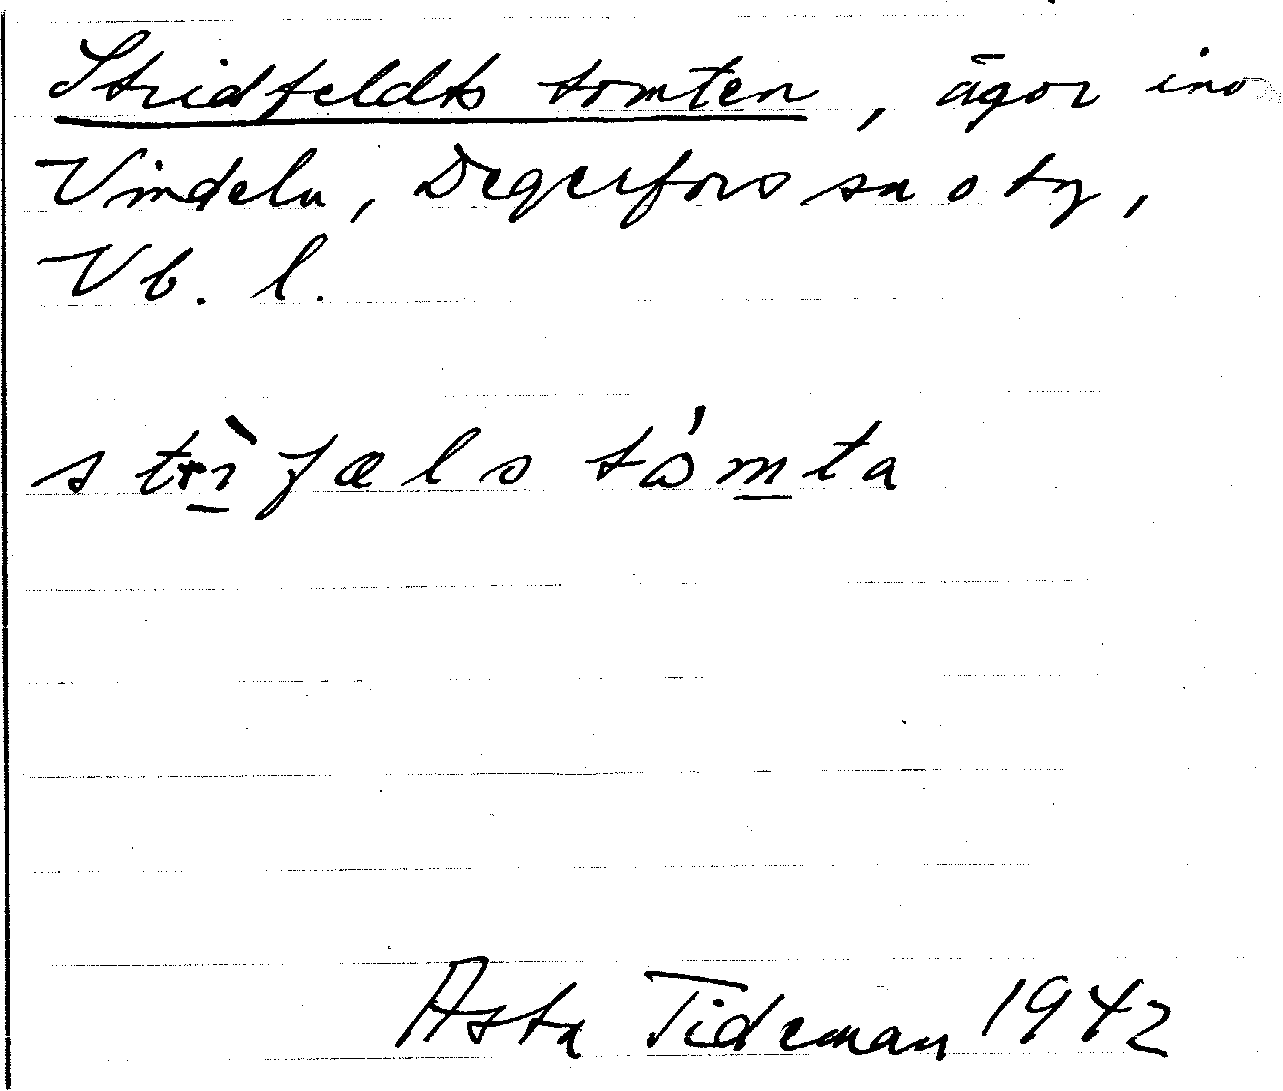 Stridfeldts tomten, ägor ino
Vindeln, Degerfors sn o tg,
Vb. l.
strìfæls tómta
Asta Tideman 1942